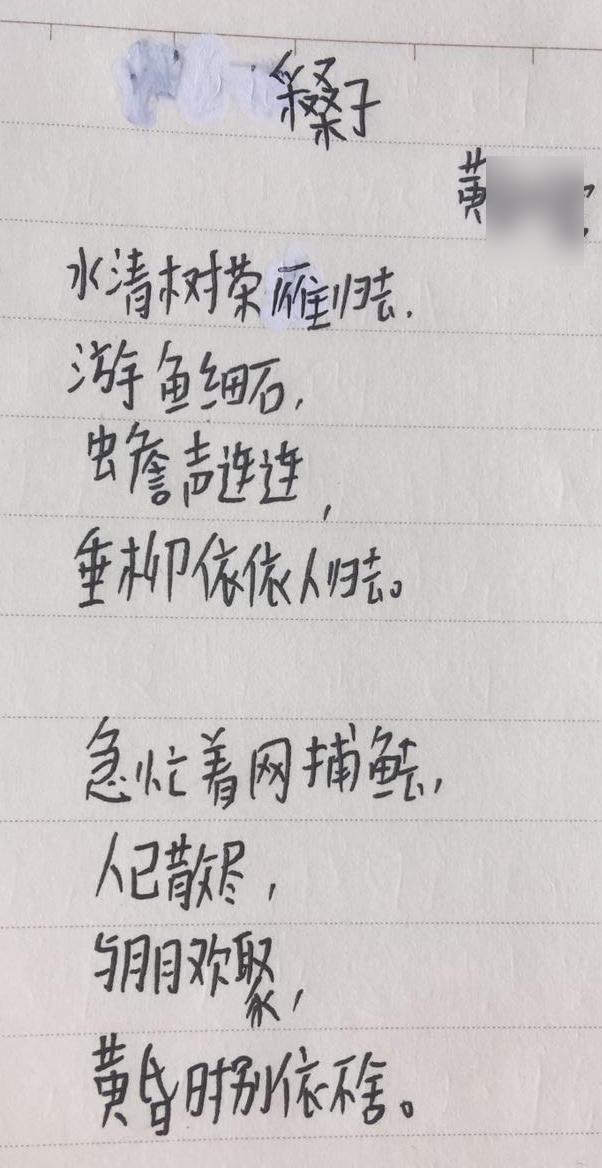 采桑子
黄
水清树茶雁归去.
游鱼细石,
虫詹声连连,
垂柳依依人归去。
急忙着网捕鱼去,
人已散尽,
与朋欢聚,
黄昏时别依不舍。